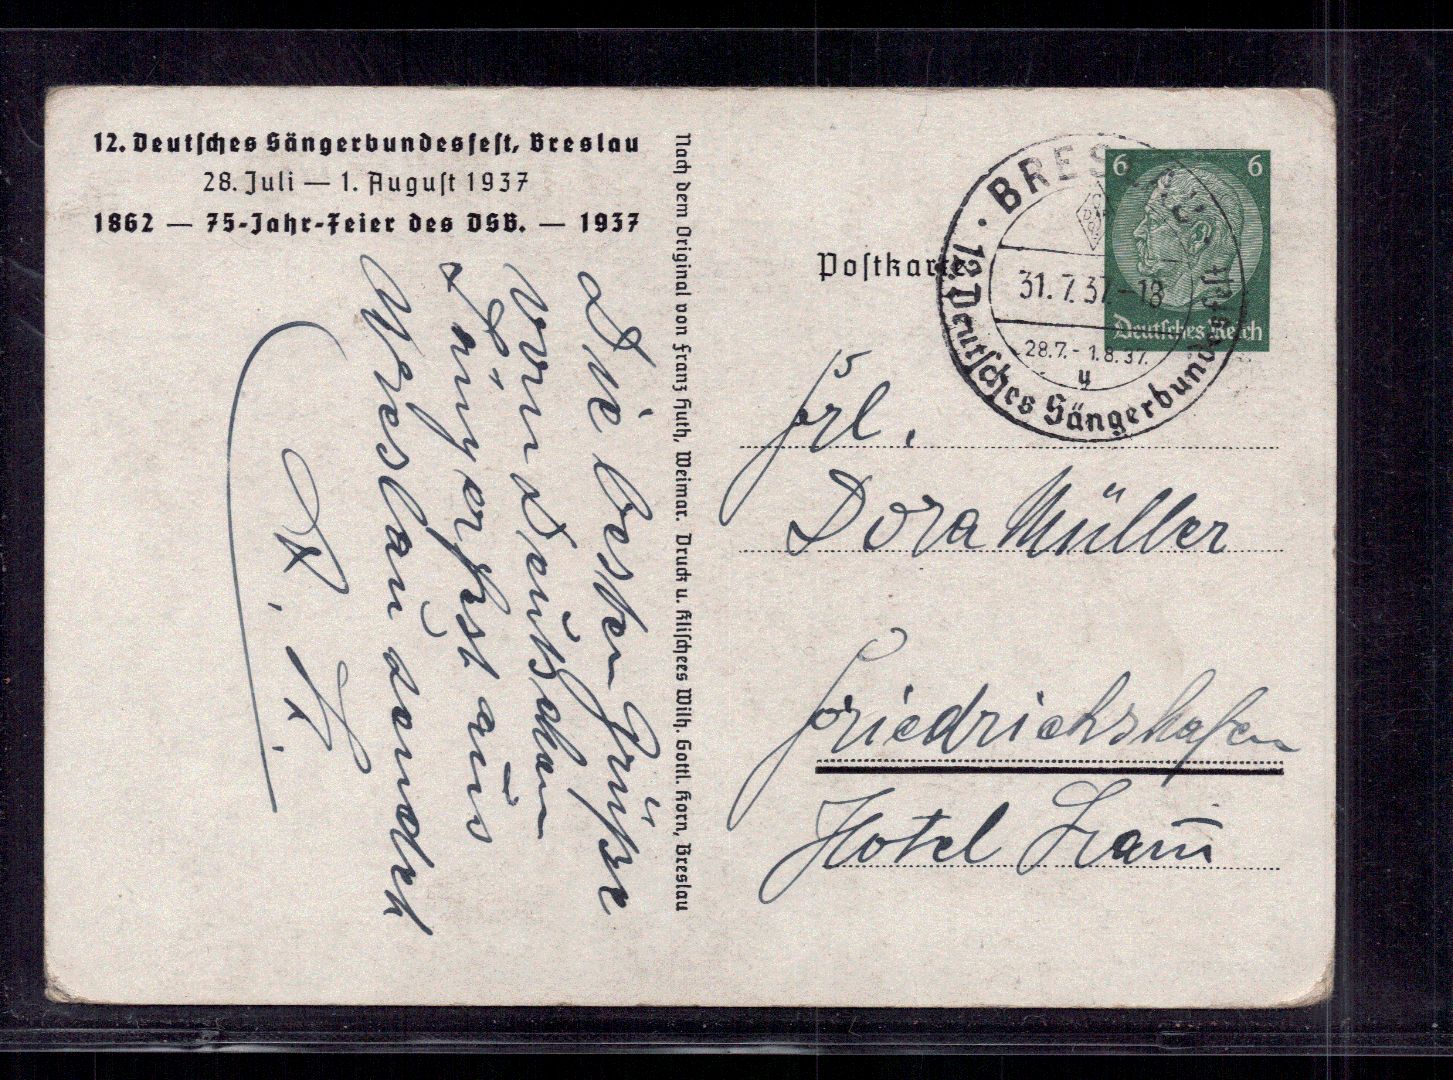 12. Deutsches Sängerbundesfest, Breslau
28. Juli — 1. August 1937
1862 — 75-Jahr-Feier des DSB. — 1937
Die besten Grüße
vom Deutschen
Sängerfest aus
Breslau sendet
Nach dem Original von Franz Huth, Weimar. Druck u. Klischees Wilh. Gottl. Korn, Breslau
Postkarte
6 6
Deutsches Reich
BRESLAU
31.7.37.-18
28.7.-1.8.37.
y
12. Deutsches Sängerbundesfest
Frl.
Dora Müller
Friedrichshafen
Hotel